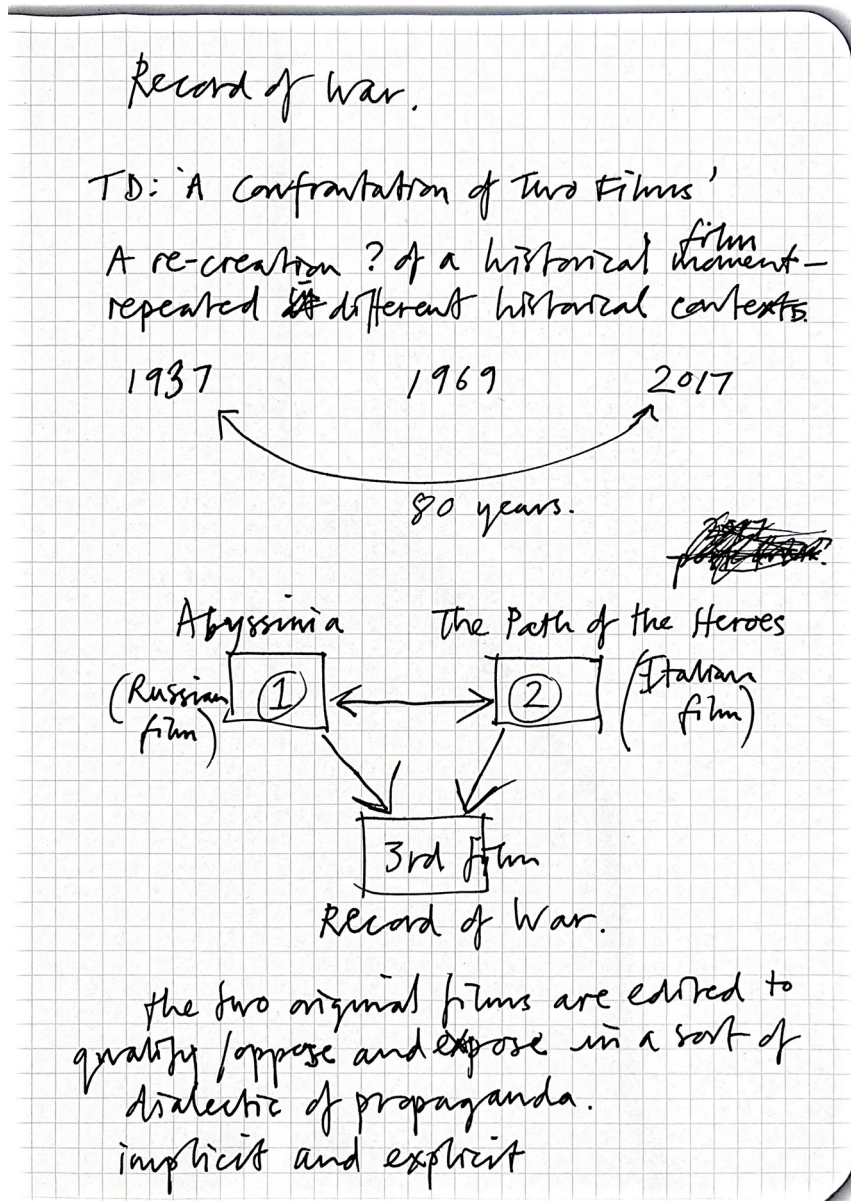 Record of War.
TD: 'A Confrontation of Two Films'
A re-creation ? of a historical film moment –
repeated in different historical contexts.
1937 1969 2017
80 years.
Abyssinia The Path of the Heroes
(Russian film) 1 2 (Italian film)
3rd film
Record of War.
the two original films are edited to
qualify / oppose and expose in a sort of
dialectic of propaganda.
implicit and explicit